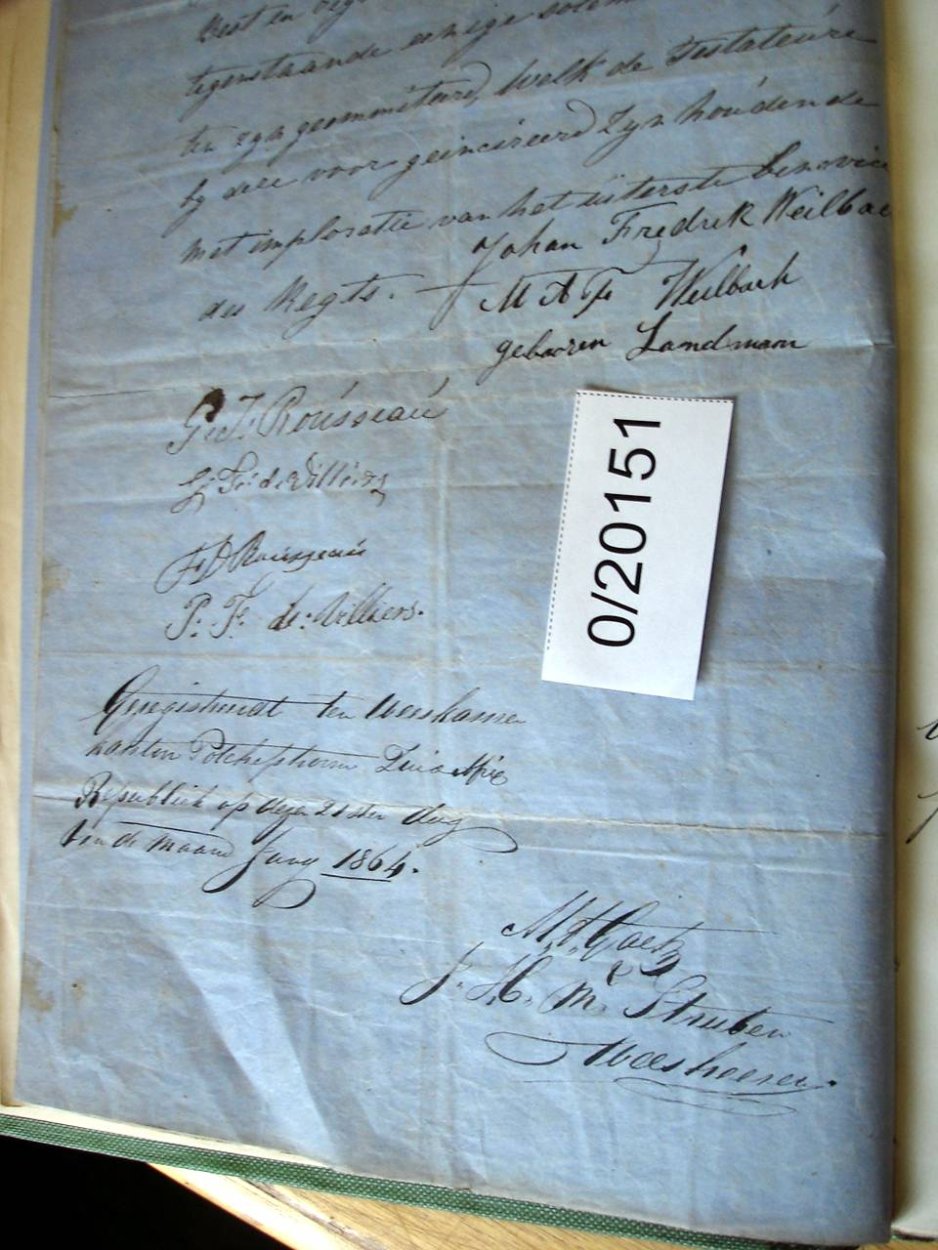 Best en
tegenstaande eenige
ten zyn geommiteerd, Welk de Testateure
by dese voor geinsereerd Zyn houdende
met imploratie van het uiterste benevici
des Regts.
Johan Fredrik Weilbac
M A F Weilbach
gebooren Landmaan
G: J: Rousseau
G: F: de Villiers
F D Rousseau
P: F: de: Villiers.
Geregistreerd ten Weeskamer
kanton Potchefstroom Zuid Afric
Republiek op dezen 21 sten dag
van de maand Juny 1864.
M. A. Goetz
J. H. M. Struben
Weesheeren.
0/20151